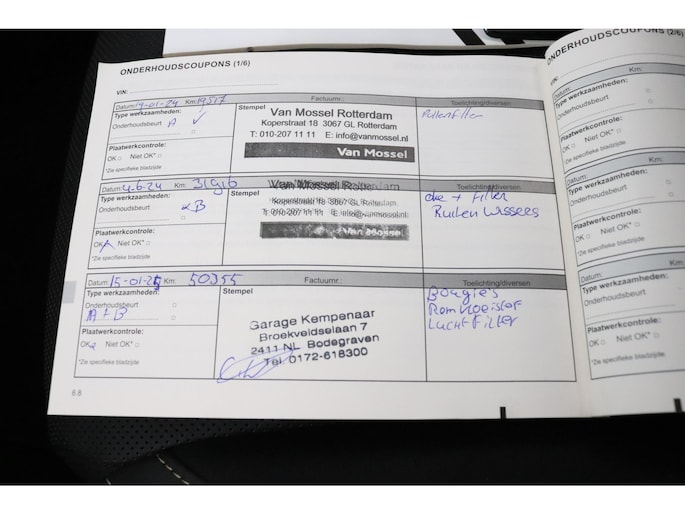 ONDERHOUDSCOUPONS (1/6)
VIN:
Datum: 19-01-24 Km: 19517 Factuurnr.: Toelichting/diversen
Type werkzaamheden:
Onderhoudsbeurt A ✓
Plaatwerkcontrole:
OK □ Niet OK* □
*Zie specifieke bladzijde
Stempel
Van Mossel Rotterdam
Koperstraat 18 3067 GL Rotterdam
T: 010-207 11 11 E: info@vanmossel.nl
Van Mossel
Pollenfilter
Datum: 4-6-24 Km: Toelichting/diversen
Type werkzaamheden:
Onderhoudsbeurt B
Plaatwerkcontrole:
OK Niet OK* □
*Zie specifieke bladzijde
Stempel
Van Mossel Rotterdam
Koperstraat 18 3067 GL Rotterdam
T: 010-207 11 11 E: info@vanmossel.nl
Van Mossel
olie + Filter
Ruiten Wissers
Datum: 15-01-25 Km: 50355 Factuurnr.: Toelichting/diversen
Type werkzaamheden:
Onderhoudsbeurt □
A + B
Plaatwerkcontrole:
OK Niet OK* □
*Zie specifieke bladzijde
Stempel
Garage Kempenaar
Broekveldselaan 7
2411 NL Bodegraven
Tel 0172-618300
Bougie's
Remvloeistof
Lucht Filter
6.8
ONDERHOUDSCOUPONS (2/6)
VIN:
Datum: Km:
Type werkzaamheden:
Onderhoudsbeurt
Plaatwerkcontrole:
OK □ Niet OK* □
*Zie specifieke bladzijde
Datum: Km:
Type werkzaamheden:
Onderhoudsbeurt
Plaatwerkcontrole:
OK □ Niet OK* □
*Zie specifieke bladzijde
Datum: Km:
Type werkzaamheden:
Onderhoudsbeurt
Plaatwerkcontrole:
OK □ Niet OK* □
*Zie specifieke bladzijde